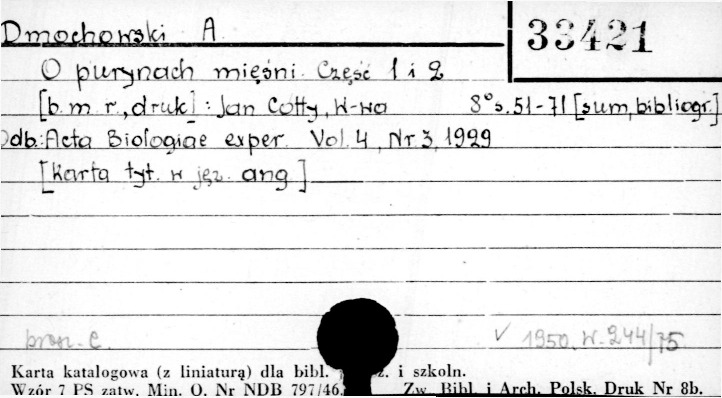 Dmochowski A.
33421
O purynach mięśni. Część 1 i 2
[b.m.r., druk]: Jan Cotty, W-wa 8° s. 51-71 [sum, bibliogr.]
Odb: Acta Biologiae exper. Vol. 4, Nr 3, 1929
[Karta tyt. w jęz. ang]
√ 1950. W. 244/75
Karta katalogowa (z liniaturą) dla bibl. i szkoln.
Wzór 7 PS zatw. Min. O. Nr NDB 797/46. Zw. Bibl. i Arch. Polsk. Druk Nr 8b.